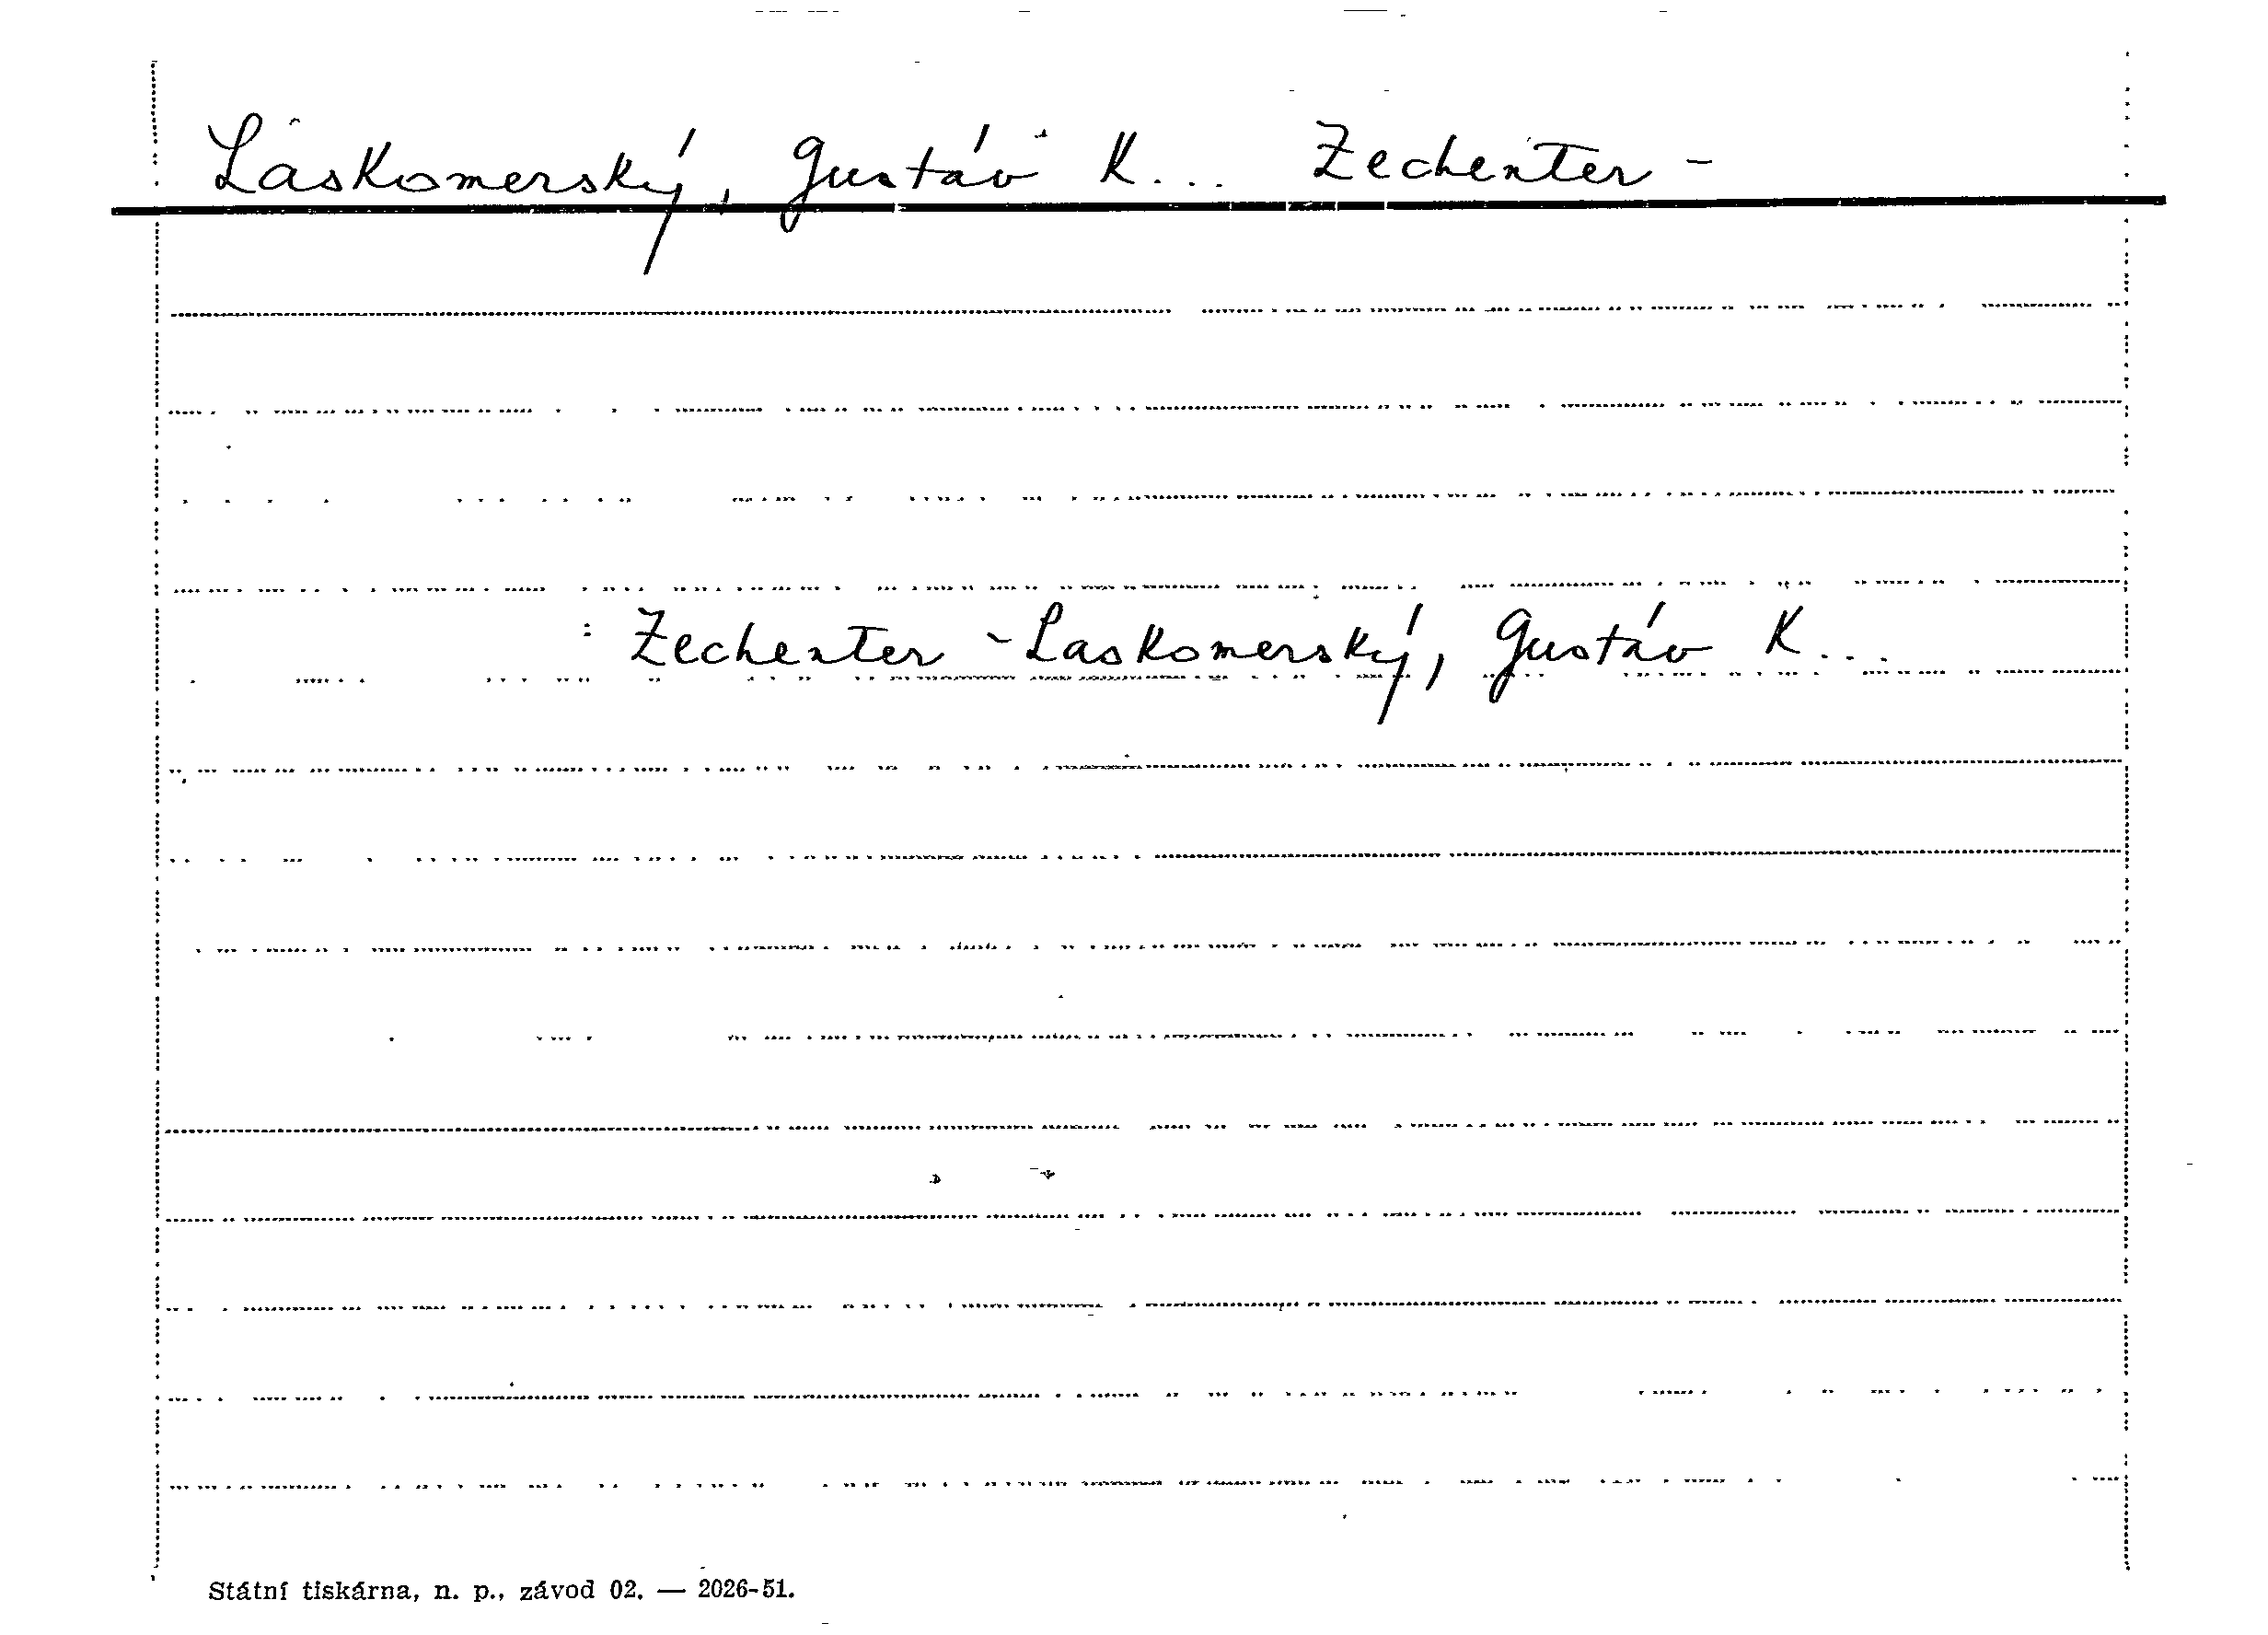 Laskomerský, Gustáv K... Zechenter -
: Zechenter - Laskomerský, Gustáv K...
Státní tiskárna, n. p., závod 02. — 2026-51.